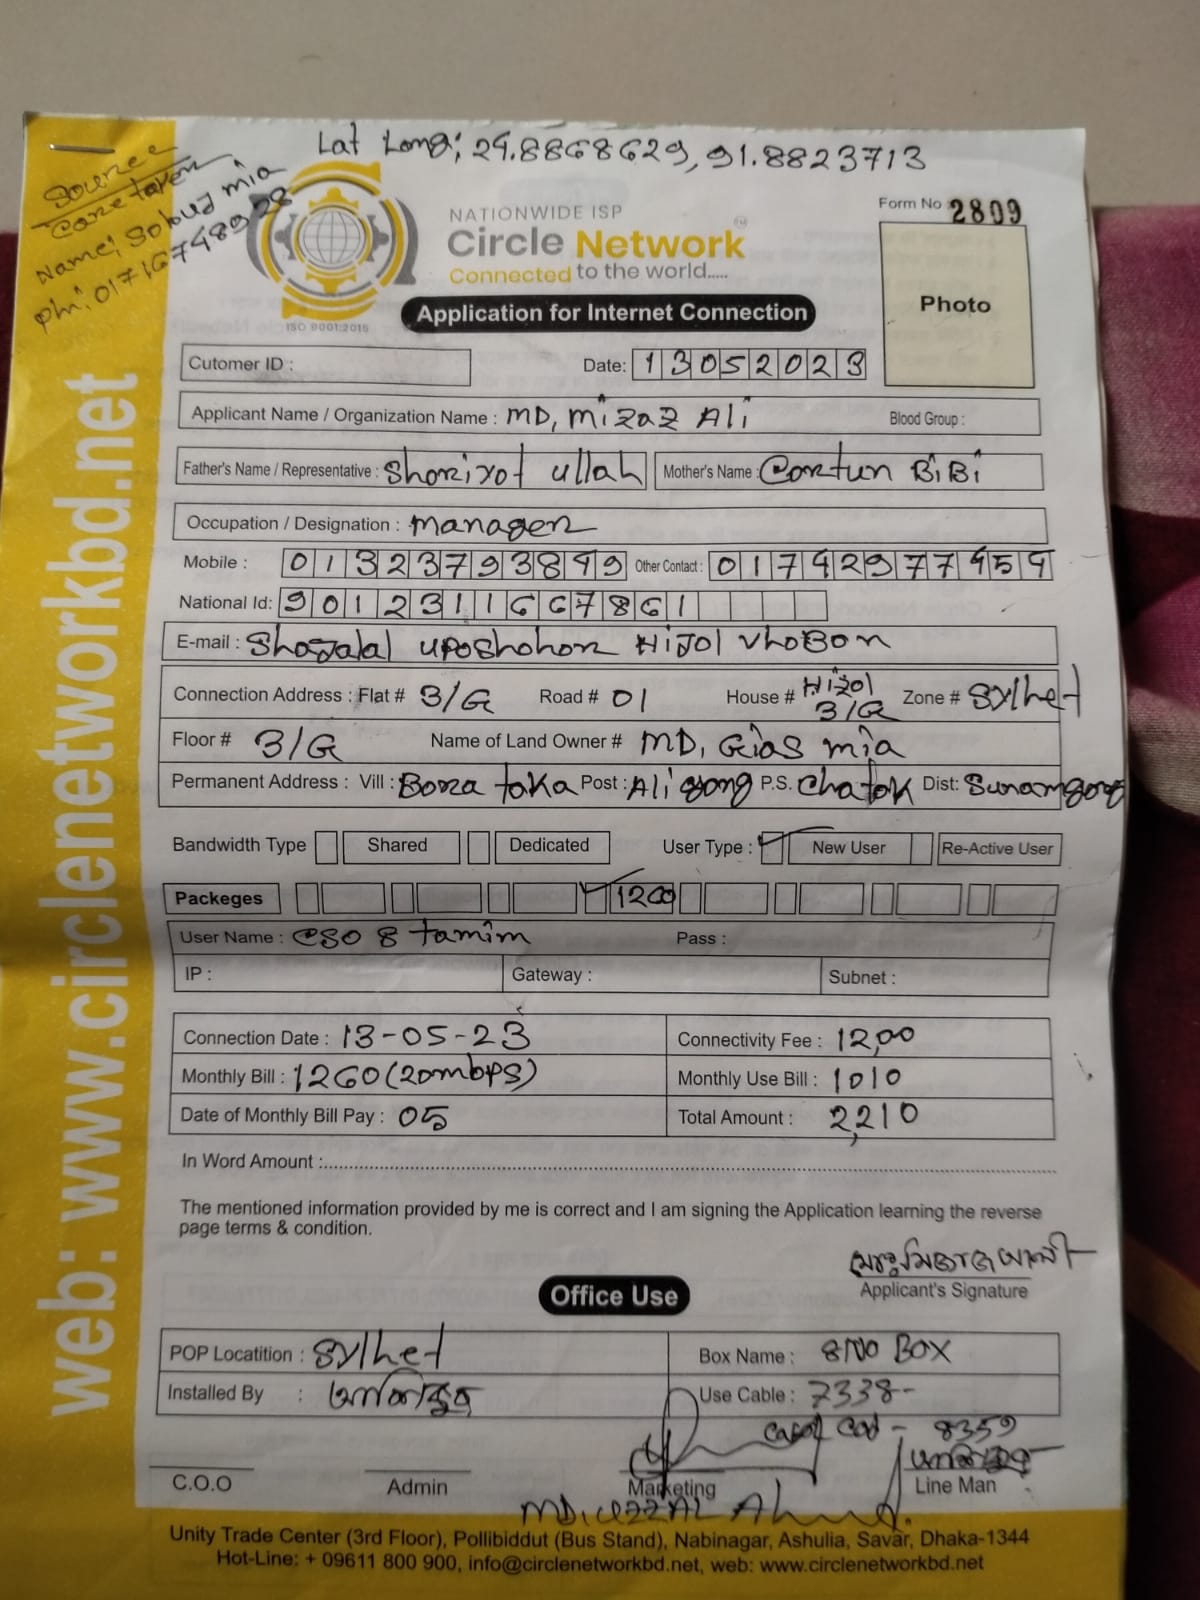 Lat Long; 24.8868629, 91.8823713
Source
Care taken
Name; Sobuj mia
ph: 01716748928
NATIONWIDE ISP
Circle Network
Connected to the world.....
ISO 9001:2015
Form No 2809
Photo
Application for Internet Connection
Cutomer ID :
Date: 13052023
Applicant Name / Organization Name : MD, Mizaz Ali
Blood Group :
Father's Name / Representative : Shoriyot ullah
Mother's Name : Cortun BiBi
Occupation / Designation : manager
Mobile : 01323793849 Other Contact : 01742977454
National Id: 9012311667861
E-mail : Shojalal uposhohor HiJol vhoBon
Connection Address : Flat # 3/G Road # 01 House # Hizol 3/G Zone # Sylhet
Floor # 3/G Name of Land Owner # MD, Gias mia
Permanent Address : Vill : Bora taka Post : Ali gong P.S. Chatok Dist: Sunamgong
Bandwidth Type Shared Dedicated User Type : New User Re-Active User
Packeges 1200
User Name : CSO 8 tamim Pass :
IP : Gateway : Subnet :
Connection Date : 13-05-23 Connectivity Fee : 12,00
Monthly Bill : 1260 (20mbps) Monthly Use Bill : 1010
Date of Monthly Bill Pay : 05 Total Amount : 2,210
In Word Amount :
The mentioned information provided by me is correct and I am signing the Application learning the reverse
page terms & condition.
মোঃ মিজাজ আলী
Applicant's Signature
Office Use
POP Locatition : Sylhet Box Name : 8 NO BOX
Installed By : Use Cable : 7338-
8359
C.O.O Admin Marketing Line Man
MD, UZZAL Ahmed.
Unity Trade Center (3rd Floor), Pollibiddut (Bus Stand), Nabinagar, Ashulia, Savar, Dhaka-1344
Hot-Line: + 09611 800 900, info@circlenetworkbd.net, web: www.circlenetworkbd.net
web: www.circlenetworkbd.net